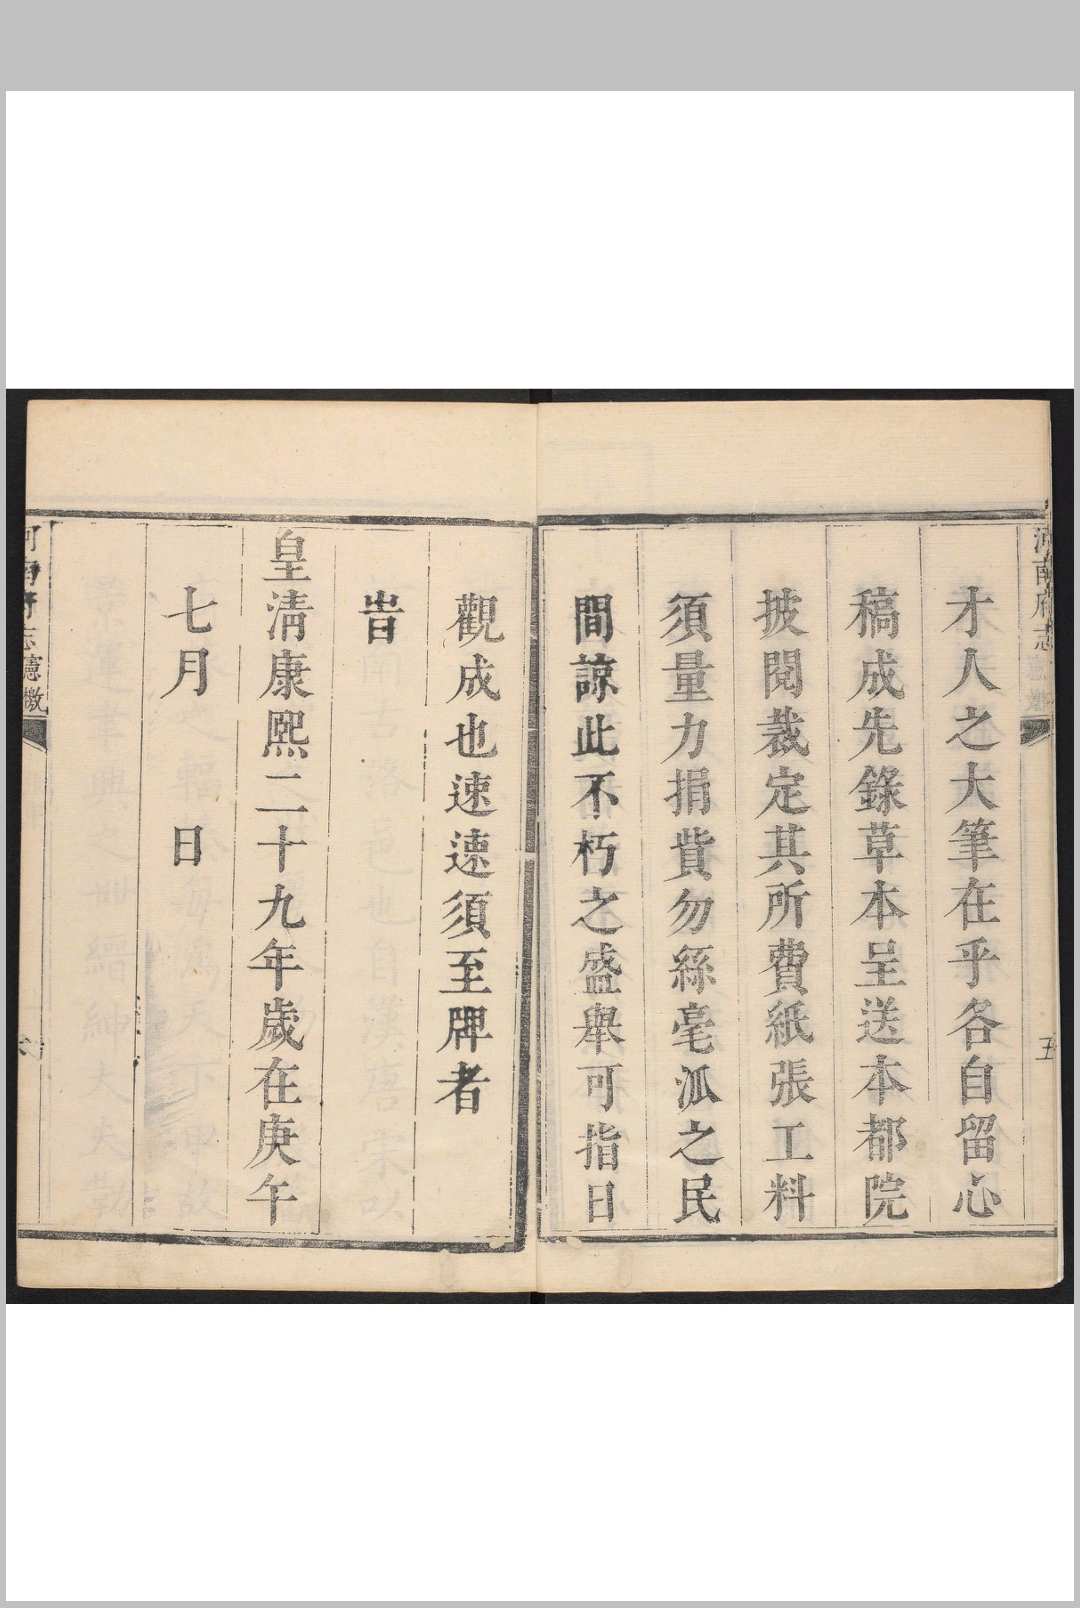 河南府志
五
才人之大筆在乎各自留心
稿成先錄草本呈送本都院
披閱裁定其所費紙張工料
須量力捐貲勿絲毫派之民
間諒此不朽之盛舉可指日
觀成也速速須至牌者
旹
皇清康熙二十九年歲在庚午
七月 日
河南府志 憲檄